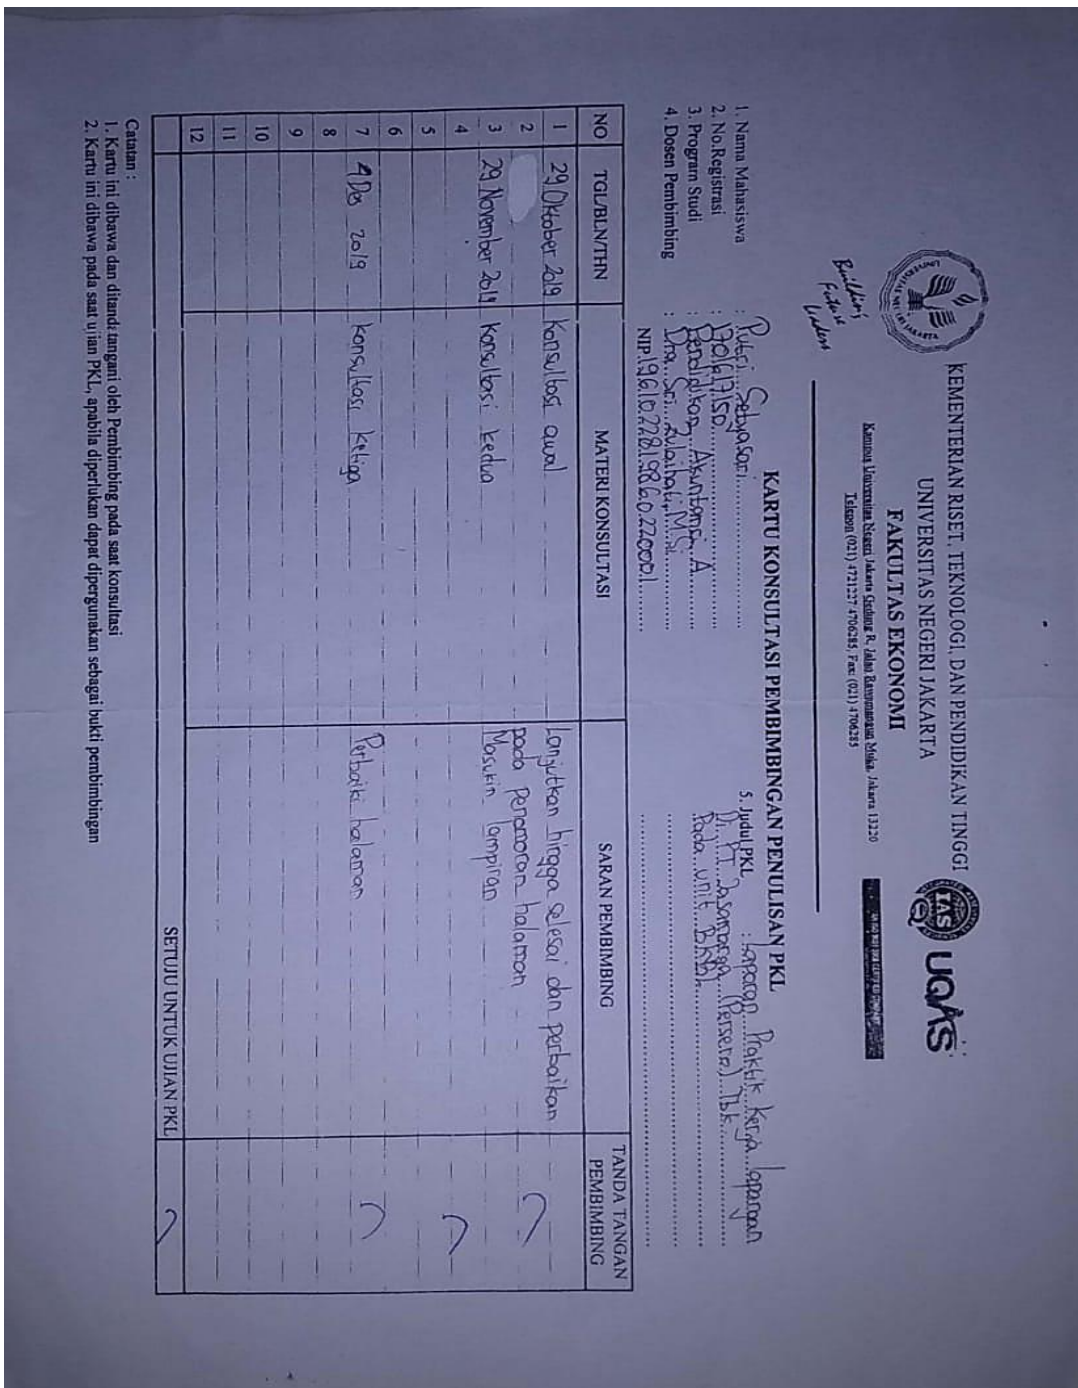 KEMENTERIAN RISET, TEKNOLOGI, DAN PENDIDIKAN TINGGI
UNIVERSITAS NEGERI JAKARTA
FAKULTAS EKONOMI
Kampus Universitas Negeri Jakarta Gedung R, Jalan Rawamangun Muka, Jakarta 13220
Telepon (021) 4721227/4706285, Fax: (021) 4706285
Building
Future
Leaders
TAS
UQAS
KARTU KONSULTASI PEMBIMBINGAN PENULISAN PKL
1. Nama Mahasiswa : Putri Setyasari
2. No.Registrasi :
3. Program Studi : Pendidikan Akuntansi A
4. Dosen Pembimbing : Dra. Sri Zulaihati, M.Si
NIP. 196102281986022001
5. Judul PKL : Laporan Praktik Kerja Lapangan
Di PT Jasamarga (Persero) Tbk
Pada unit
NO TGL/BLN/THN MATERI KONSULTASI SARAN PEMBIMBING TANDA TANGAN PEMBIMBING
1 29 Oktober 2019 Konsultasi awal Lanjutkan hingga selesai dan perbaikan
2 pada penomoran halaman
3 29 November 2019 Konsultasi kedua Masukin lampiran
4
5
6
7 4 Des 2019 Konsultasi ketiga Perbaiki halaman
8
9
10
11
12
SETUJU UNTUK UJIAN PKL
Catatan :
1. Kartu ini dibawa dan ditandatangani oleh Pembimbing pada saat konsultasi
2. Kartu ini dibawa pada saat ujian PKL, apabila diperlukan dapat dipergunakan sebagai bukti pembimbingan